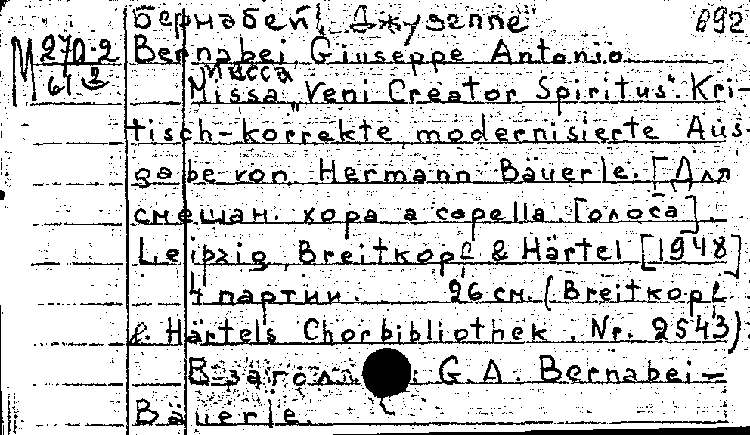 Бернабеи, Джузеппе 692
М 270-2 Bernabei, Giuseppe Antonio
61 2 Мисса
Missa "Veni Creator Spiritus". Kri-
tisch-korrekte modernisierte Aus-
gabe von Hermann Bäuerle. [Для
смешан. хора a capella. Голоса].
Leipzig, Breitkopf & Härtel [1948]
4 партии. 26 см. (Breitkopf
& Härtels Chorbibliothek. Nr. 2543)
В заголл. : G. A. Bernabei—
Bäuerle.